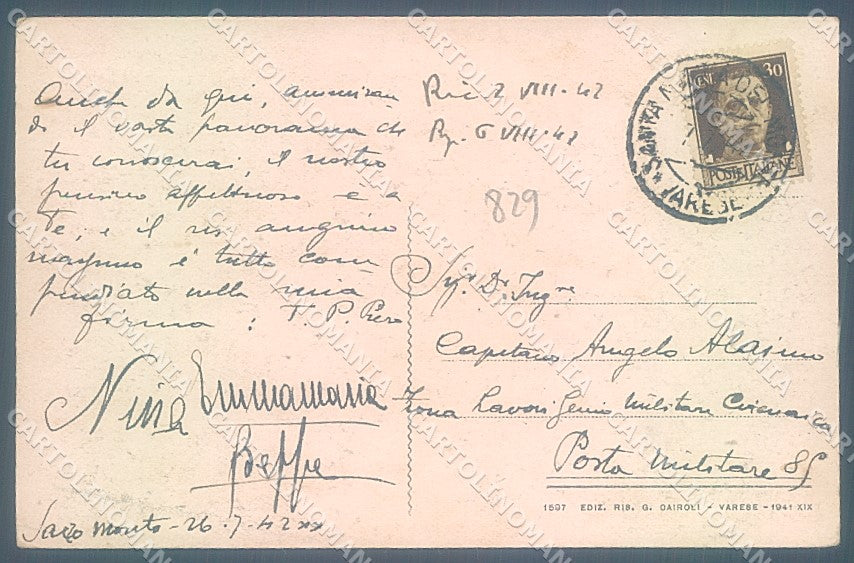 Anche da qui, ammiran
do il vasto panorama che
tu conoscerai, il nostro
pensiero affettuoso è a
Te, e il mio augurio
è tutto com
pendiato nella mia
forma: Piero
Nina Emmamaria
Beppe
Sacro Monte - 26 · 7 · 42 XX
Ric 2 VIII · 42
Rp. 6 VIII · 42
829
CENT 30
POSTE ITALIANE
SANTA MARIA DEL
VARESE
Sig. Dr. Ingre
Capitano Angelo Alaimo
Zona Lavori Genio Militare Cirenaica
Posta Militare 85
1597 EDIZ. RIB. G. CAIROLI - VARESE - 1941 XIX
CARTOLINOMANIA